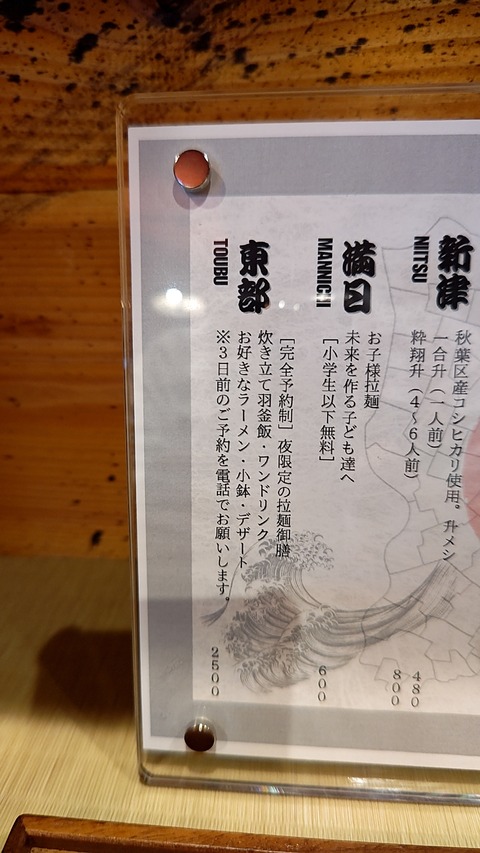 新津
NIITSU
秋葉区産コシヒカリ使用。升メシ
一合升（一人前）
480
粋翔升（4～6人前）
800
満日
MANNICHI
お子様拉麺
未来を作る子ども達へ
［小学生以下無料］
600
東部
TOUBU
［完全予約制］夜限定の拉麺御膳
炊き立て羽釜飯・ワンドリンク
お好きなラーメン・小鉢・デザート
※3日前のご予約を電話でお願いします。
2500